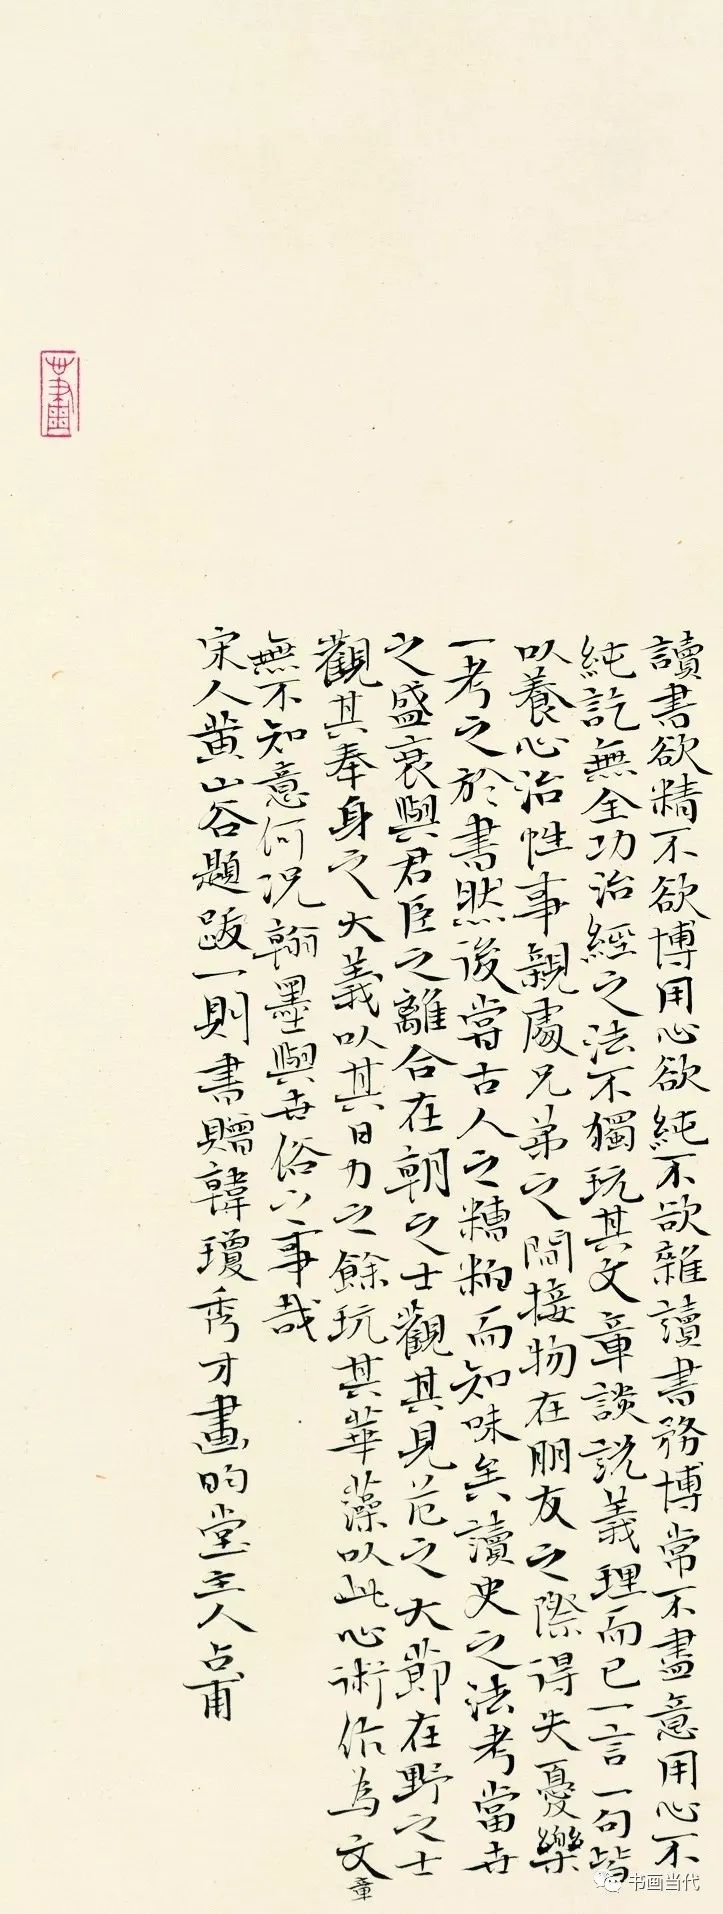 讀書欲精不欲博用心欲純不欲雜讀書務博常不盡意用心不
純訖無全功治經之法不獨玩其文章談説義理而已一言一句皆
以養心治性事親處兄弟之間接物在朋友之際得失憂樂
一考之於書然後嘗古人之糟粕而知味矣讀史之法考當世
之盛衰與君臣之離合在朝之士觀其見危之大節在野之士
觀其奉身之大義以其日力之餘玩其華藻以此心術作為文章
無不知意何况翰墨與世俗之事哉
宋人黄山谷題跋一則書贈韓瓊秀才畫昀堂主人占甫
书画当代